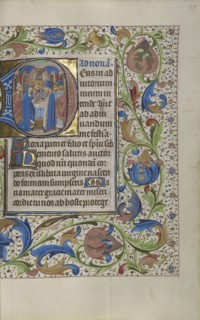 ad nonā.
Eus in ad
iutorium
meum in
tende. Dñe
ad adiu
uandum
me festīa
loria patri et filio et spiu scō
emento salutis auctor
quod nri quondā cor
poris ex illibata virgine nascen
do formam sumpseris Ma
ria mater gracie mater miseri
cordie tu nos ab hoste protege